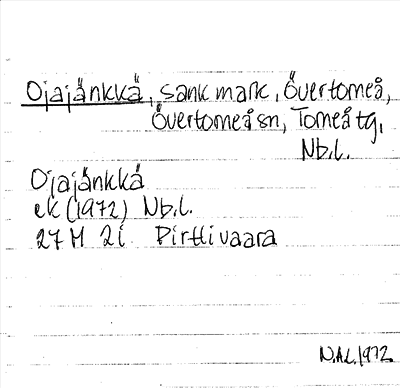 Ojajänkkä, sank mark, Övertorneå,
Övertorneå sn, Torneå tg,
Nb.l.
Ojajänkkä
ek (1972) Nb.l.
27 M 2i Pirttivaara
N.A.L. 1972